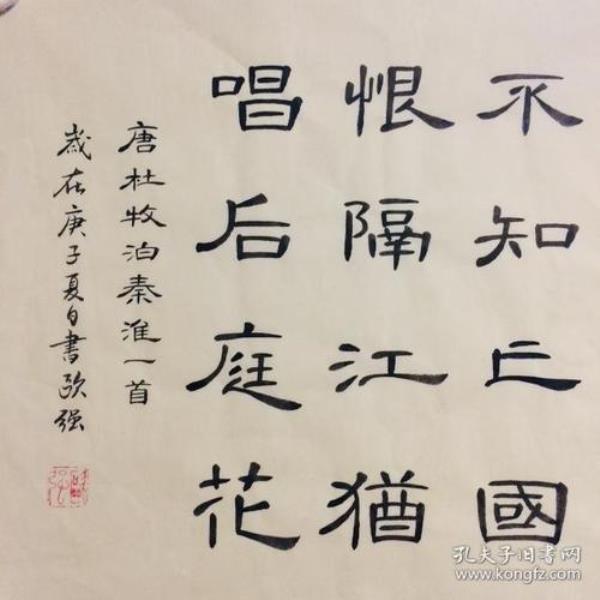 不知亡國
恨隔江猶
唱后庭花
唐杜牧泊秦淮一首
歲在庚子夏日書欧强
孔夫子旧书网
www.kongfz.com